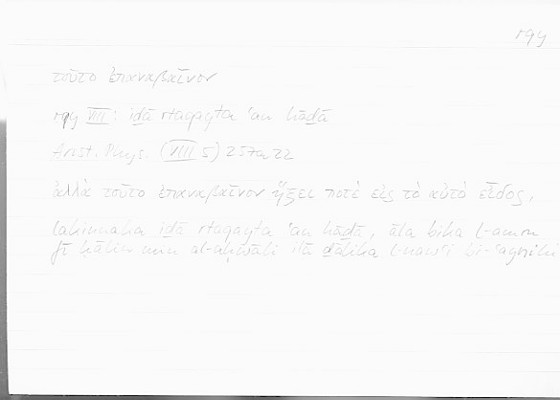 rqy
τοῦτο ἐπαναβαῖνον
rqy VIII: iḏā rtaqayta ʿan hāḏā
Arist. Phys. (VIII 5) 257a22
ἀλλὰ τοῦτο ἐπαναβαῖνον ἥξει ποτὲ εἰς τὸ αὐτὸ εἶδος,
lakinnaka iḏā rtaqayta ʿan hāḏā, āla bika l-amru
fī ḥālin min al-aḥwāli ilā ḏālika l-nawʿi bi-ʿaynihi